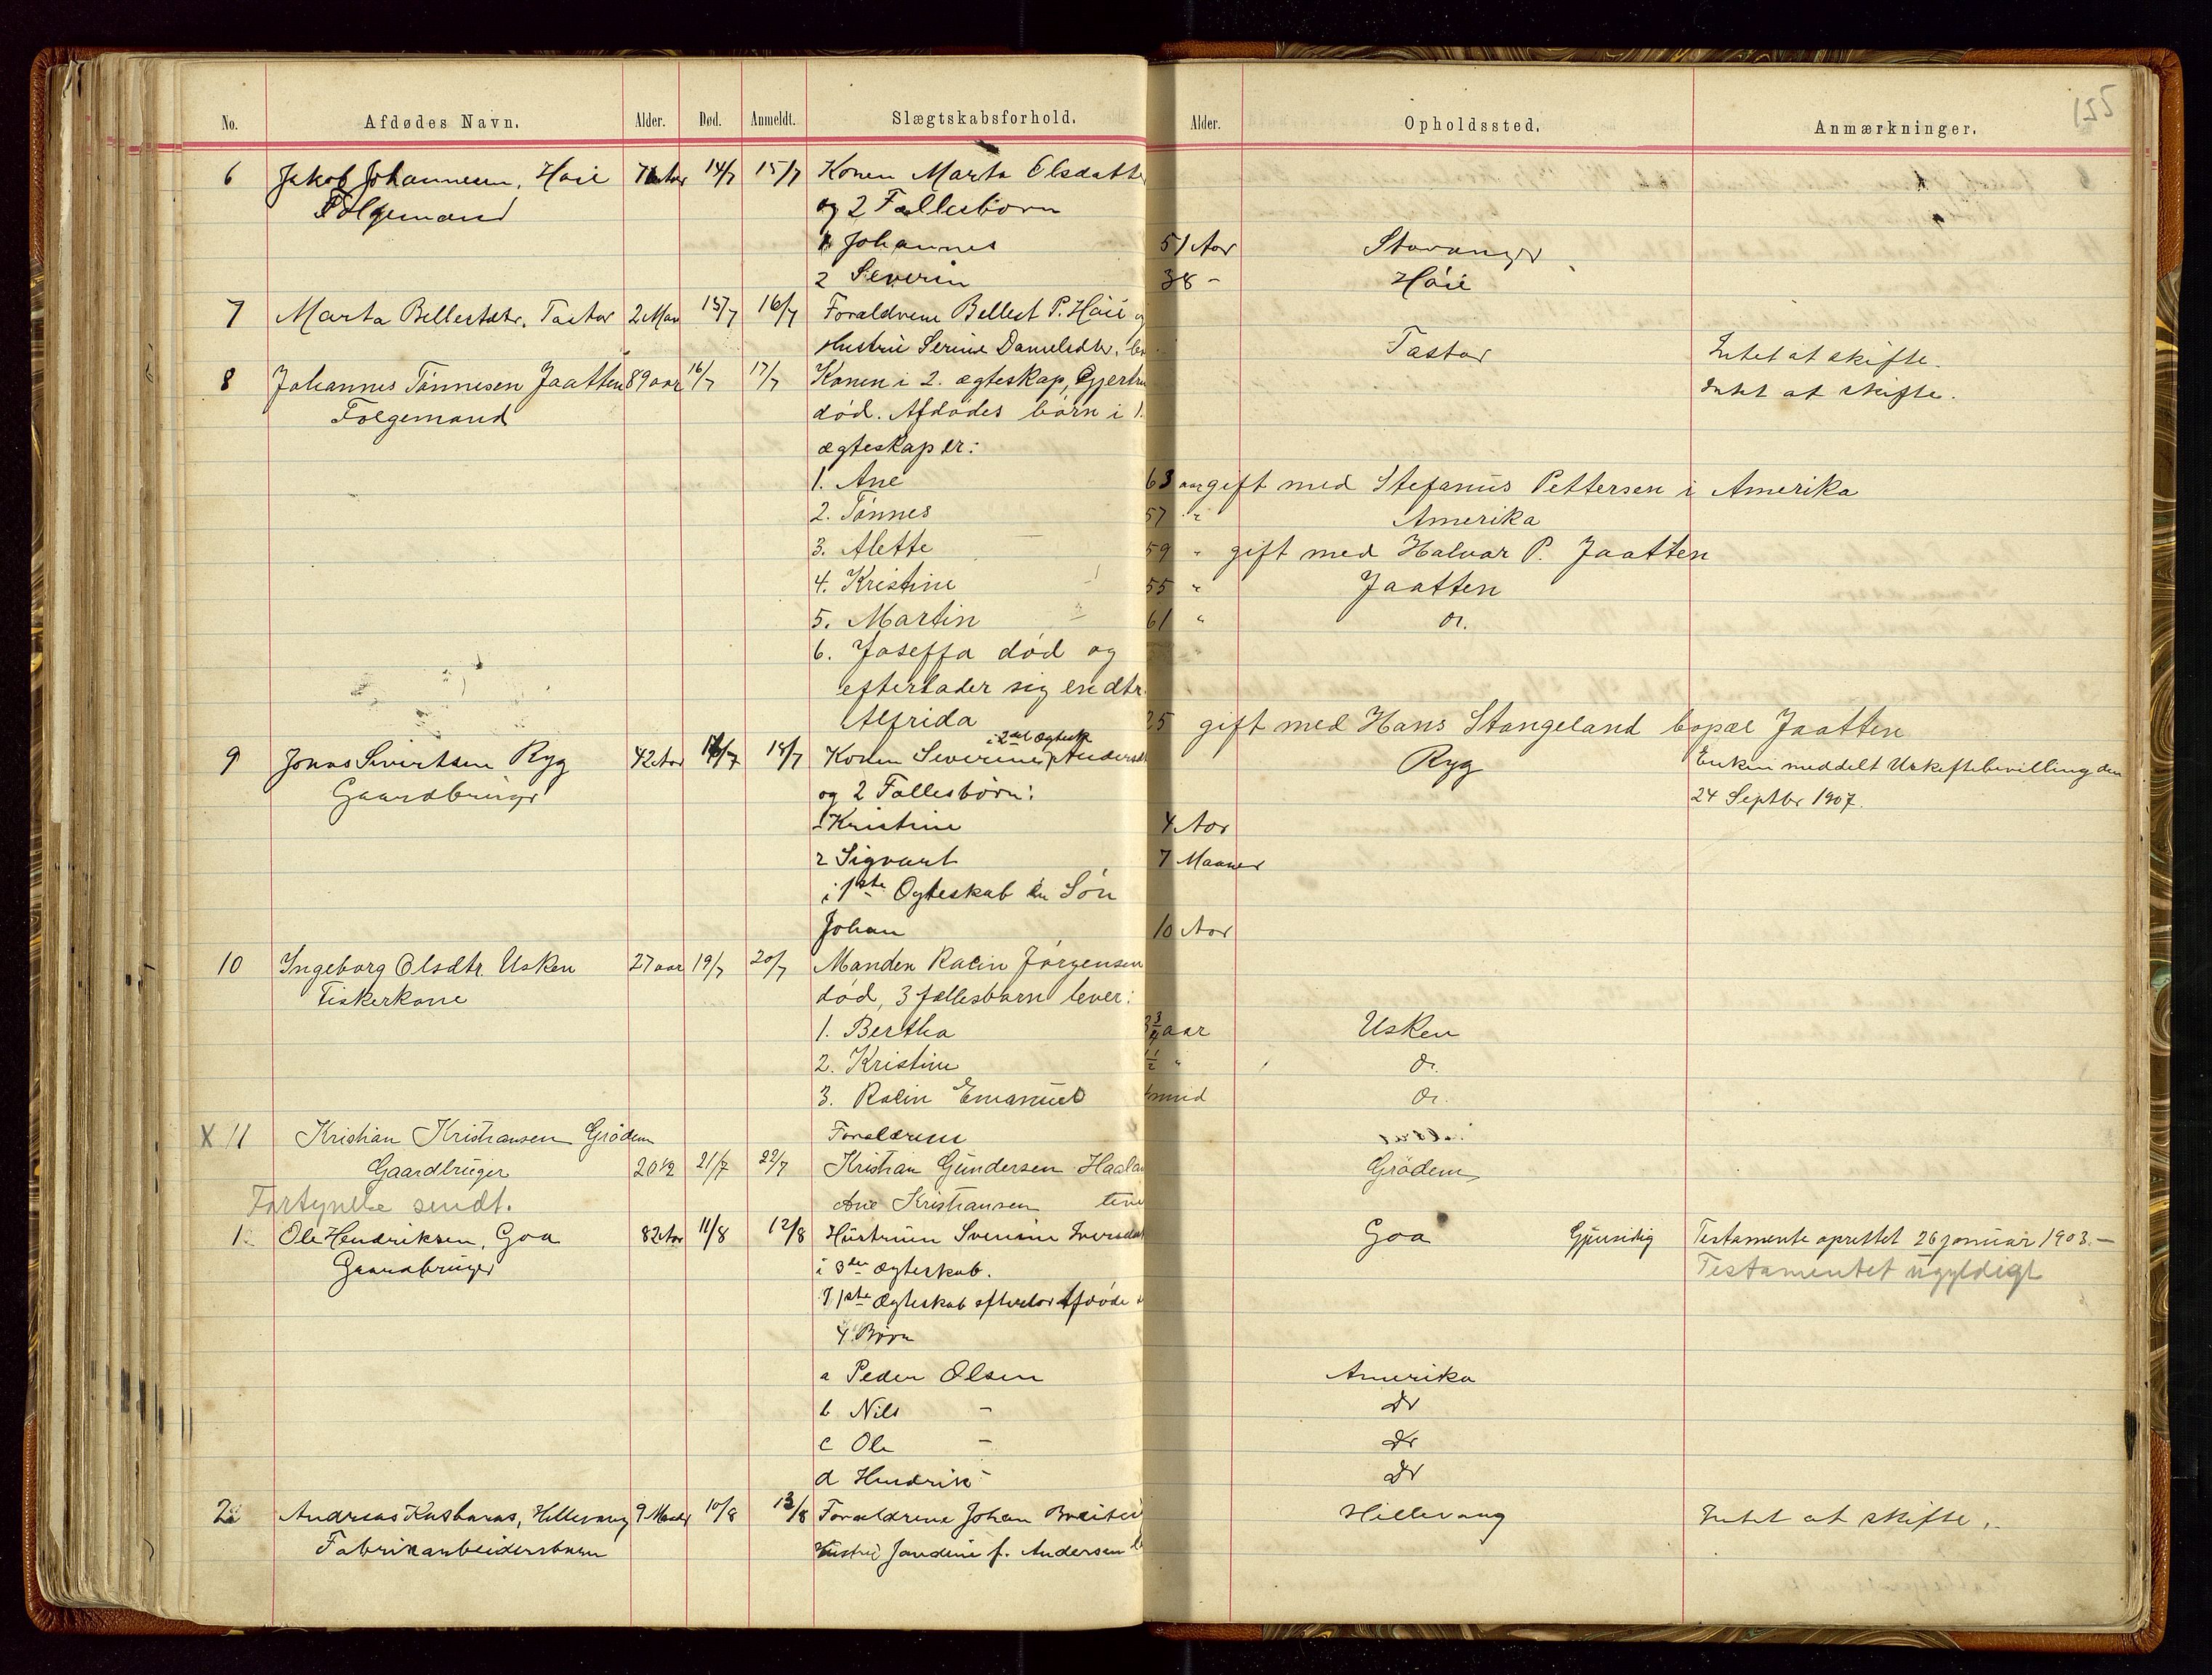 125
No. Afdødes Navn. Alder. Død. Anmeldt. Slægtskabsforhold. Alder. Opholdssted. Anmærkninger.
6 Jakob Johannesen, Høie Aar 14/7 15/7 Konen Marta Elsdatte
Følgemand og 2 Fællesbørn
1 Johannes 51 Aar Stavanger
2 Severin 38 - Høie
7 Marta Bellestdtr. Tastar 2 Man 15/7 16/7 Forældrene Bellest P. Høie
Hustrue Serine Danielsdtr. Tastar Intet at skifte.
8 Johannes Tönnesen Jaatten 89 aar 16/7 17/7 Konen i 2. ægteskap, Gjertru Intet at skifte.
Folgemand död. Afdödes börn i 1.
ægteskap er:
1. Ane 63 aar gift med Stefanus Pettersen i Amerika
2. Tönnes 57 " Amerika
3. Alette 59 " gift med Halvar P. Jaatten
4. Kristine 55 " Jaatten
5. Martin 61 " do.
6. Joseffa död og
efterlader sig en dtr.
Alfrida 25 gift med Hans Stangeland bopæl Jaatten
i 2det Ægtesk
9 Jonas Sivertsen Ryg 42 Aar 16/7 18/7 Konen Severine Andersd Ryg Enken meddelt Uskiftebevilling den
Gaardbruger og 2 Fællesbørn: 24 Septbr 1907.
1 Kristine 4 Aar
2 Sigvart 7 Maaner
i 1ste Ægteskab en Søn
Johan 10 Aar
10 Ingeborg Olsdtr. Usken 27 aar 19/7 20/7 Manden Jörgensen
Fiskerkone död, 3 fællesbarn lever:
1. Bertha 3/4 aar Usken
2. Kristine 1/2 " do.
3. Emanuel mnd do.
X 11 Kristian Kristiansen Grödem Forældrene
Gaardbruger 20 1/2 21/7 22/7 Kristian Gundersen Haala Grödem
Fortynelse sendt. Ane Kristiansen
1 Ole Hendriksen, Goa 82 Aar 11/8 12/8 Hustruen Sverine Iversdat Goa Gjensidig Testamente oprettet 26 januar 1903.-
Gaardbruger i 3die Ægteskab. Testamentet ugyldigt
I 1ste Ægteskab efterlod Afdøde
4 Børn
a Peder Olsen Amerika
b Nils - do
c Ole - do
d Hendrik - do
2 Andreas Hillevaag 9 Maaned 10/8 13/8 Forældrene Johan Hillevaag Intet at skifte.
Fabrikarbeidersbarn Hustru Jandine f. Andersen